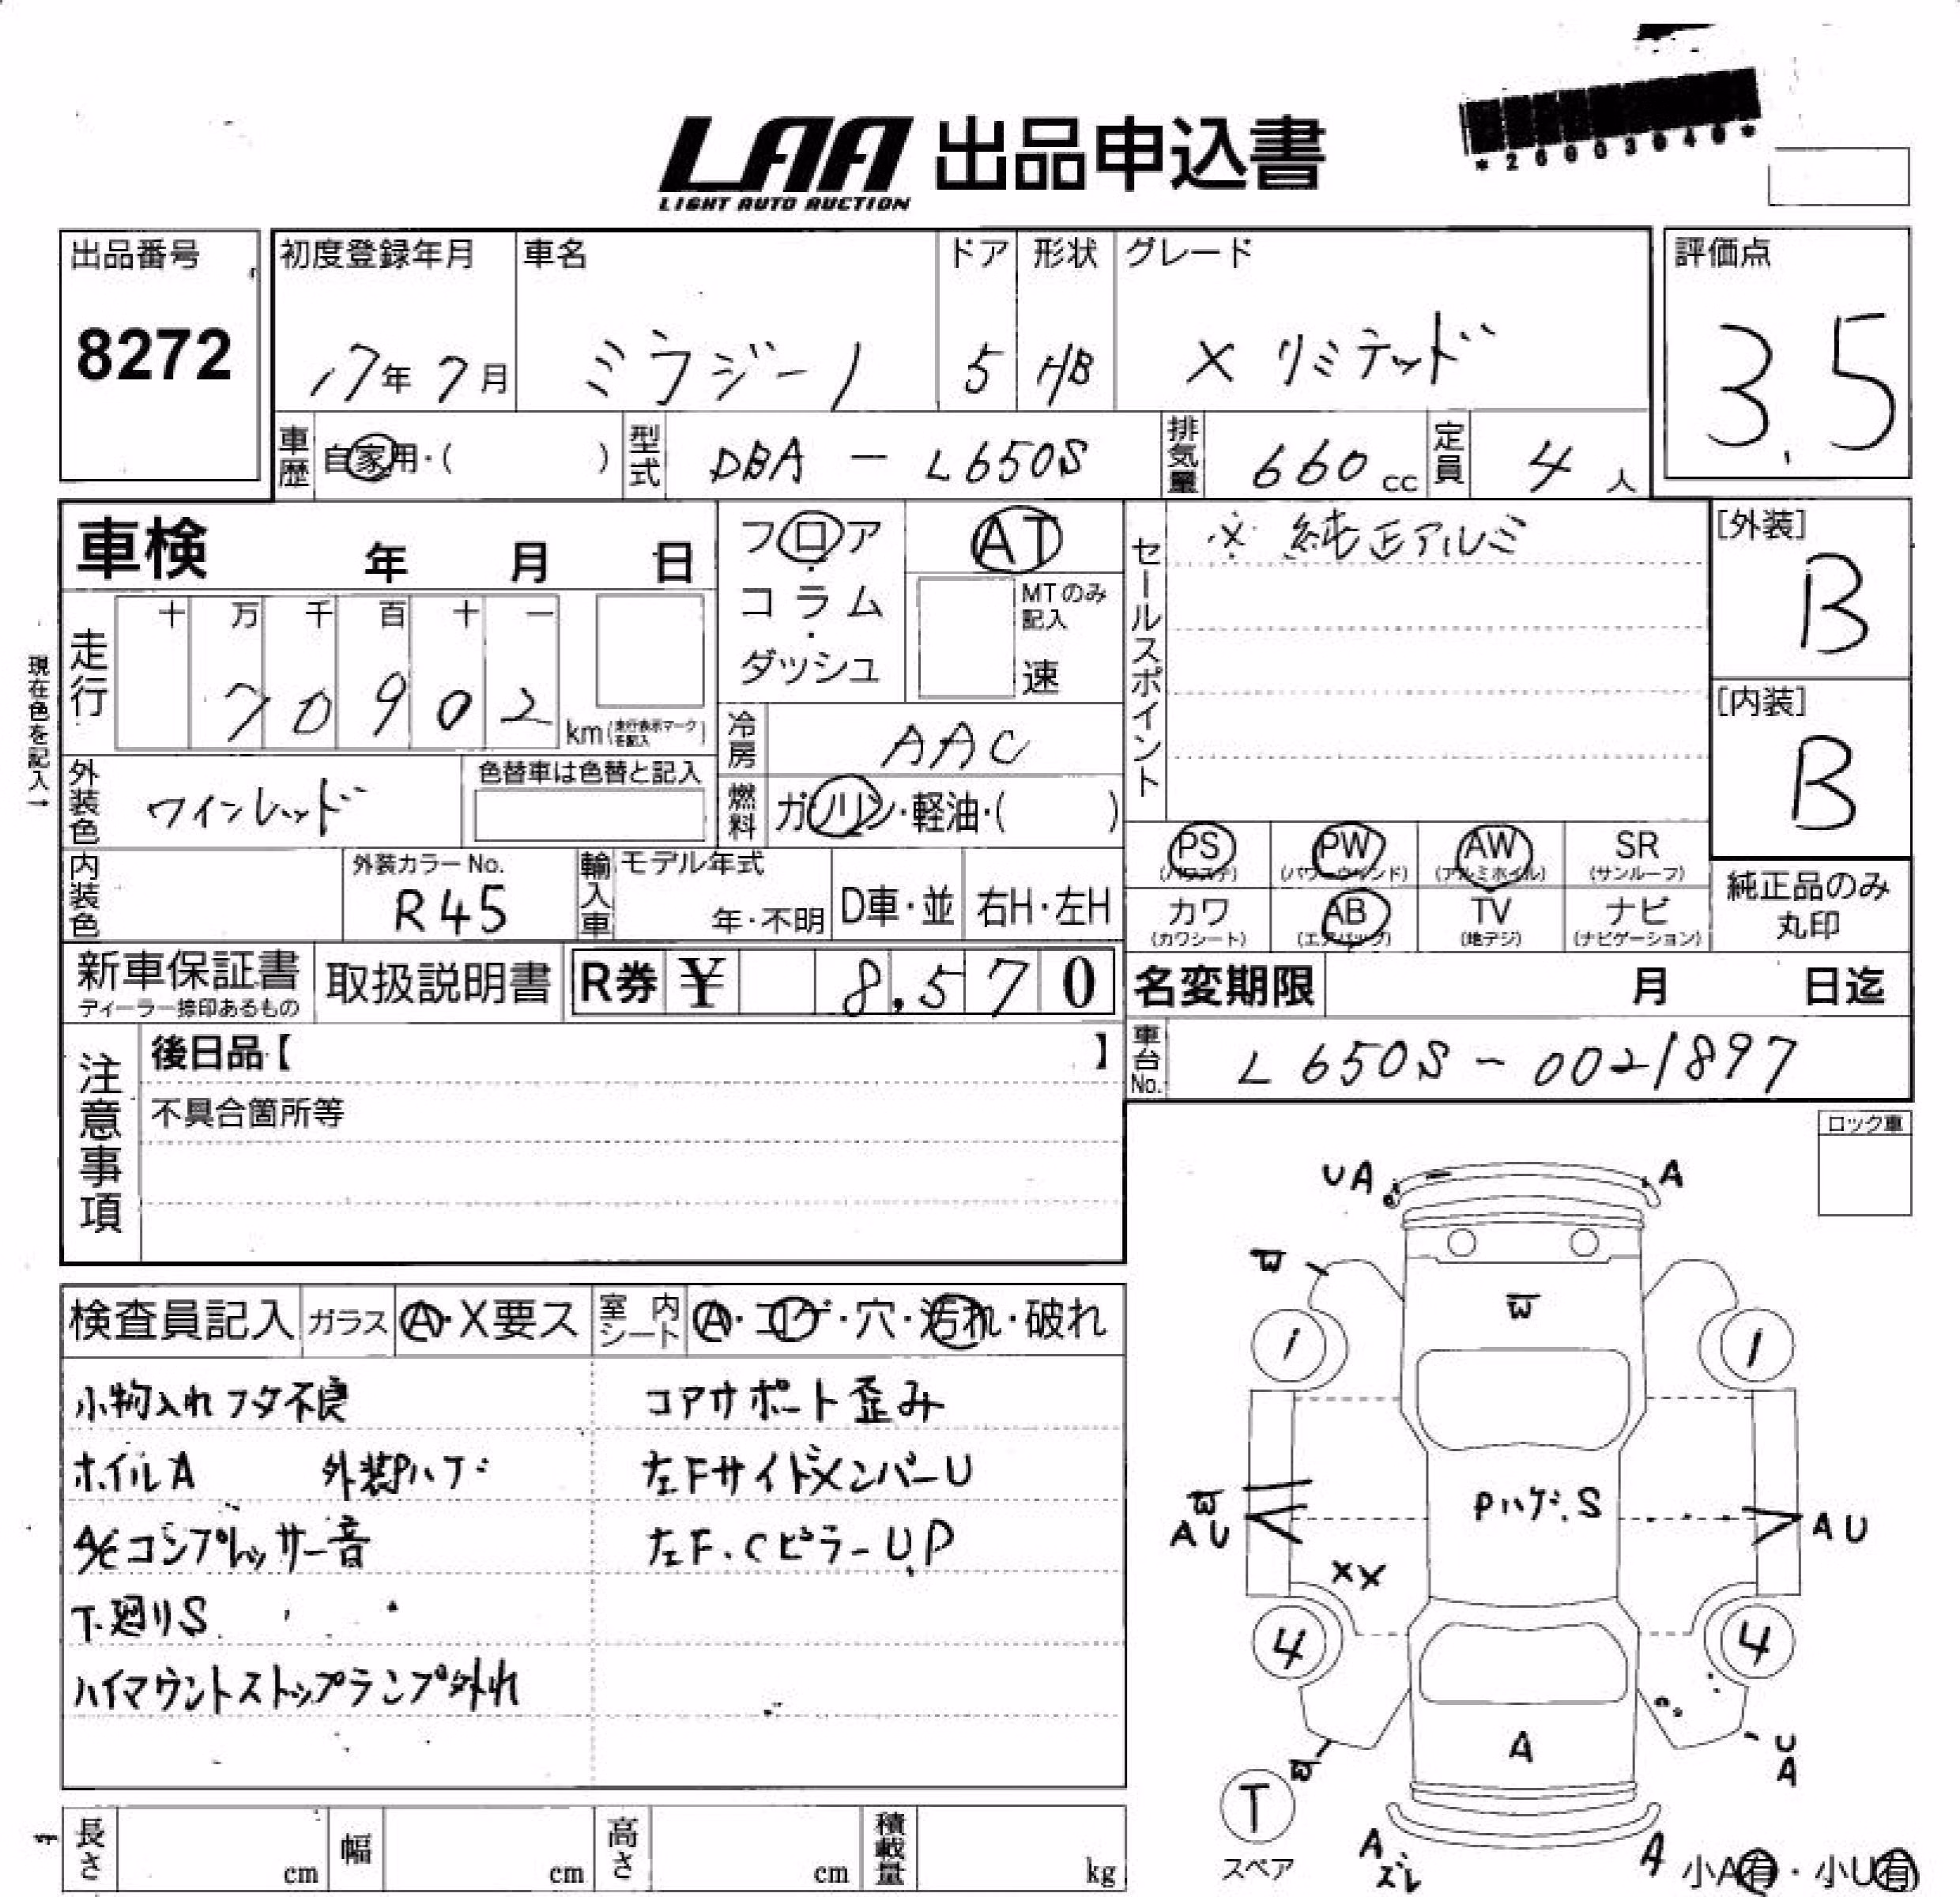 *26803040*
LAA 出品申込書
LIGHT AUTO AUCTION
出品番号
8272
初度登録年月 車名 ドア 形状 グレード
17年 7月 ミラジーノ 5 HB X リミテッド
評価点
3.5
車歴 自家用・( ) 型式 DBA - L650S 排気量 660 cc 定員 4 人
車検 年 月 日
走行 十 万 千 百 十 一
7 0 9 0 2 km (走行表示マークを記入)
現在色を記入→
外装色 ワインレッド 色替車は色替と記入
内装色 外装カラーNo. R45
輸入車 モデル年式 年・不明 D車・並 右H・左H
フロア・コラム・ダッシュ
AT
MTのみ記入 速
冷房 AAC
燃料 ガソリン・軽油・( )
セールスポイント
※ 純正アルミ
[外装]
B
[内装]
B
PS (パワステ) PW (パワーウィンド) AW (アルミホイル) SR (サンルーフ)
カワ (カワシート) AB (エアバッグ) TV (地デジ) ナビ (ナビゲーション)
純正品のみ丸印
新車保証書 ディーラー捺印あるもの 取扱説明書 R券 ¥ 8,570
名変期限 月 日迄
車台No. L650S-0021897
注意事項
後日品【 】
不具合箇所等
ロック車
検査員記入 ガラス A・X要ス 室内シート A・コゲ・穴・汚れ・破れ
小物入れフタ不良 コアサポート歪み
ホイルA 外装Pハゲ 左FサイドメンバーU
A/Cコンプレッサー音 左F.CピラーUP
下廻りS
ハイマウントストップランプ外れ
UA A
W W
1 1
W
AU PハゲS AU
XX
4 4
A
W
U
A
T
スペア
A
ズレ
A
小A有・小U有
長さ cm 幅 cm 高さ cm 積載量 kg